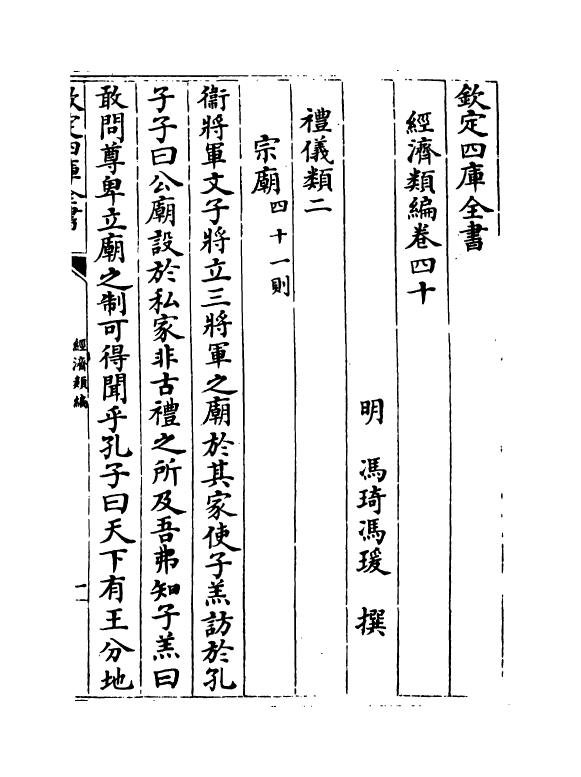 欽定四庫全書
經濟類編卷四十
明 馮琦馮瑗 撰
禮儀類二
宗廟四十一則
衞將軍文子將立三將軍之廟於其家使子羔訪於孔
子子曰公廟設於私家非古禮之所及吾弗知子羔曰
敢問尊卑立廟之制可得聞乎孔子曰天下有王分地
欽定四庫全書
經濟類編
一